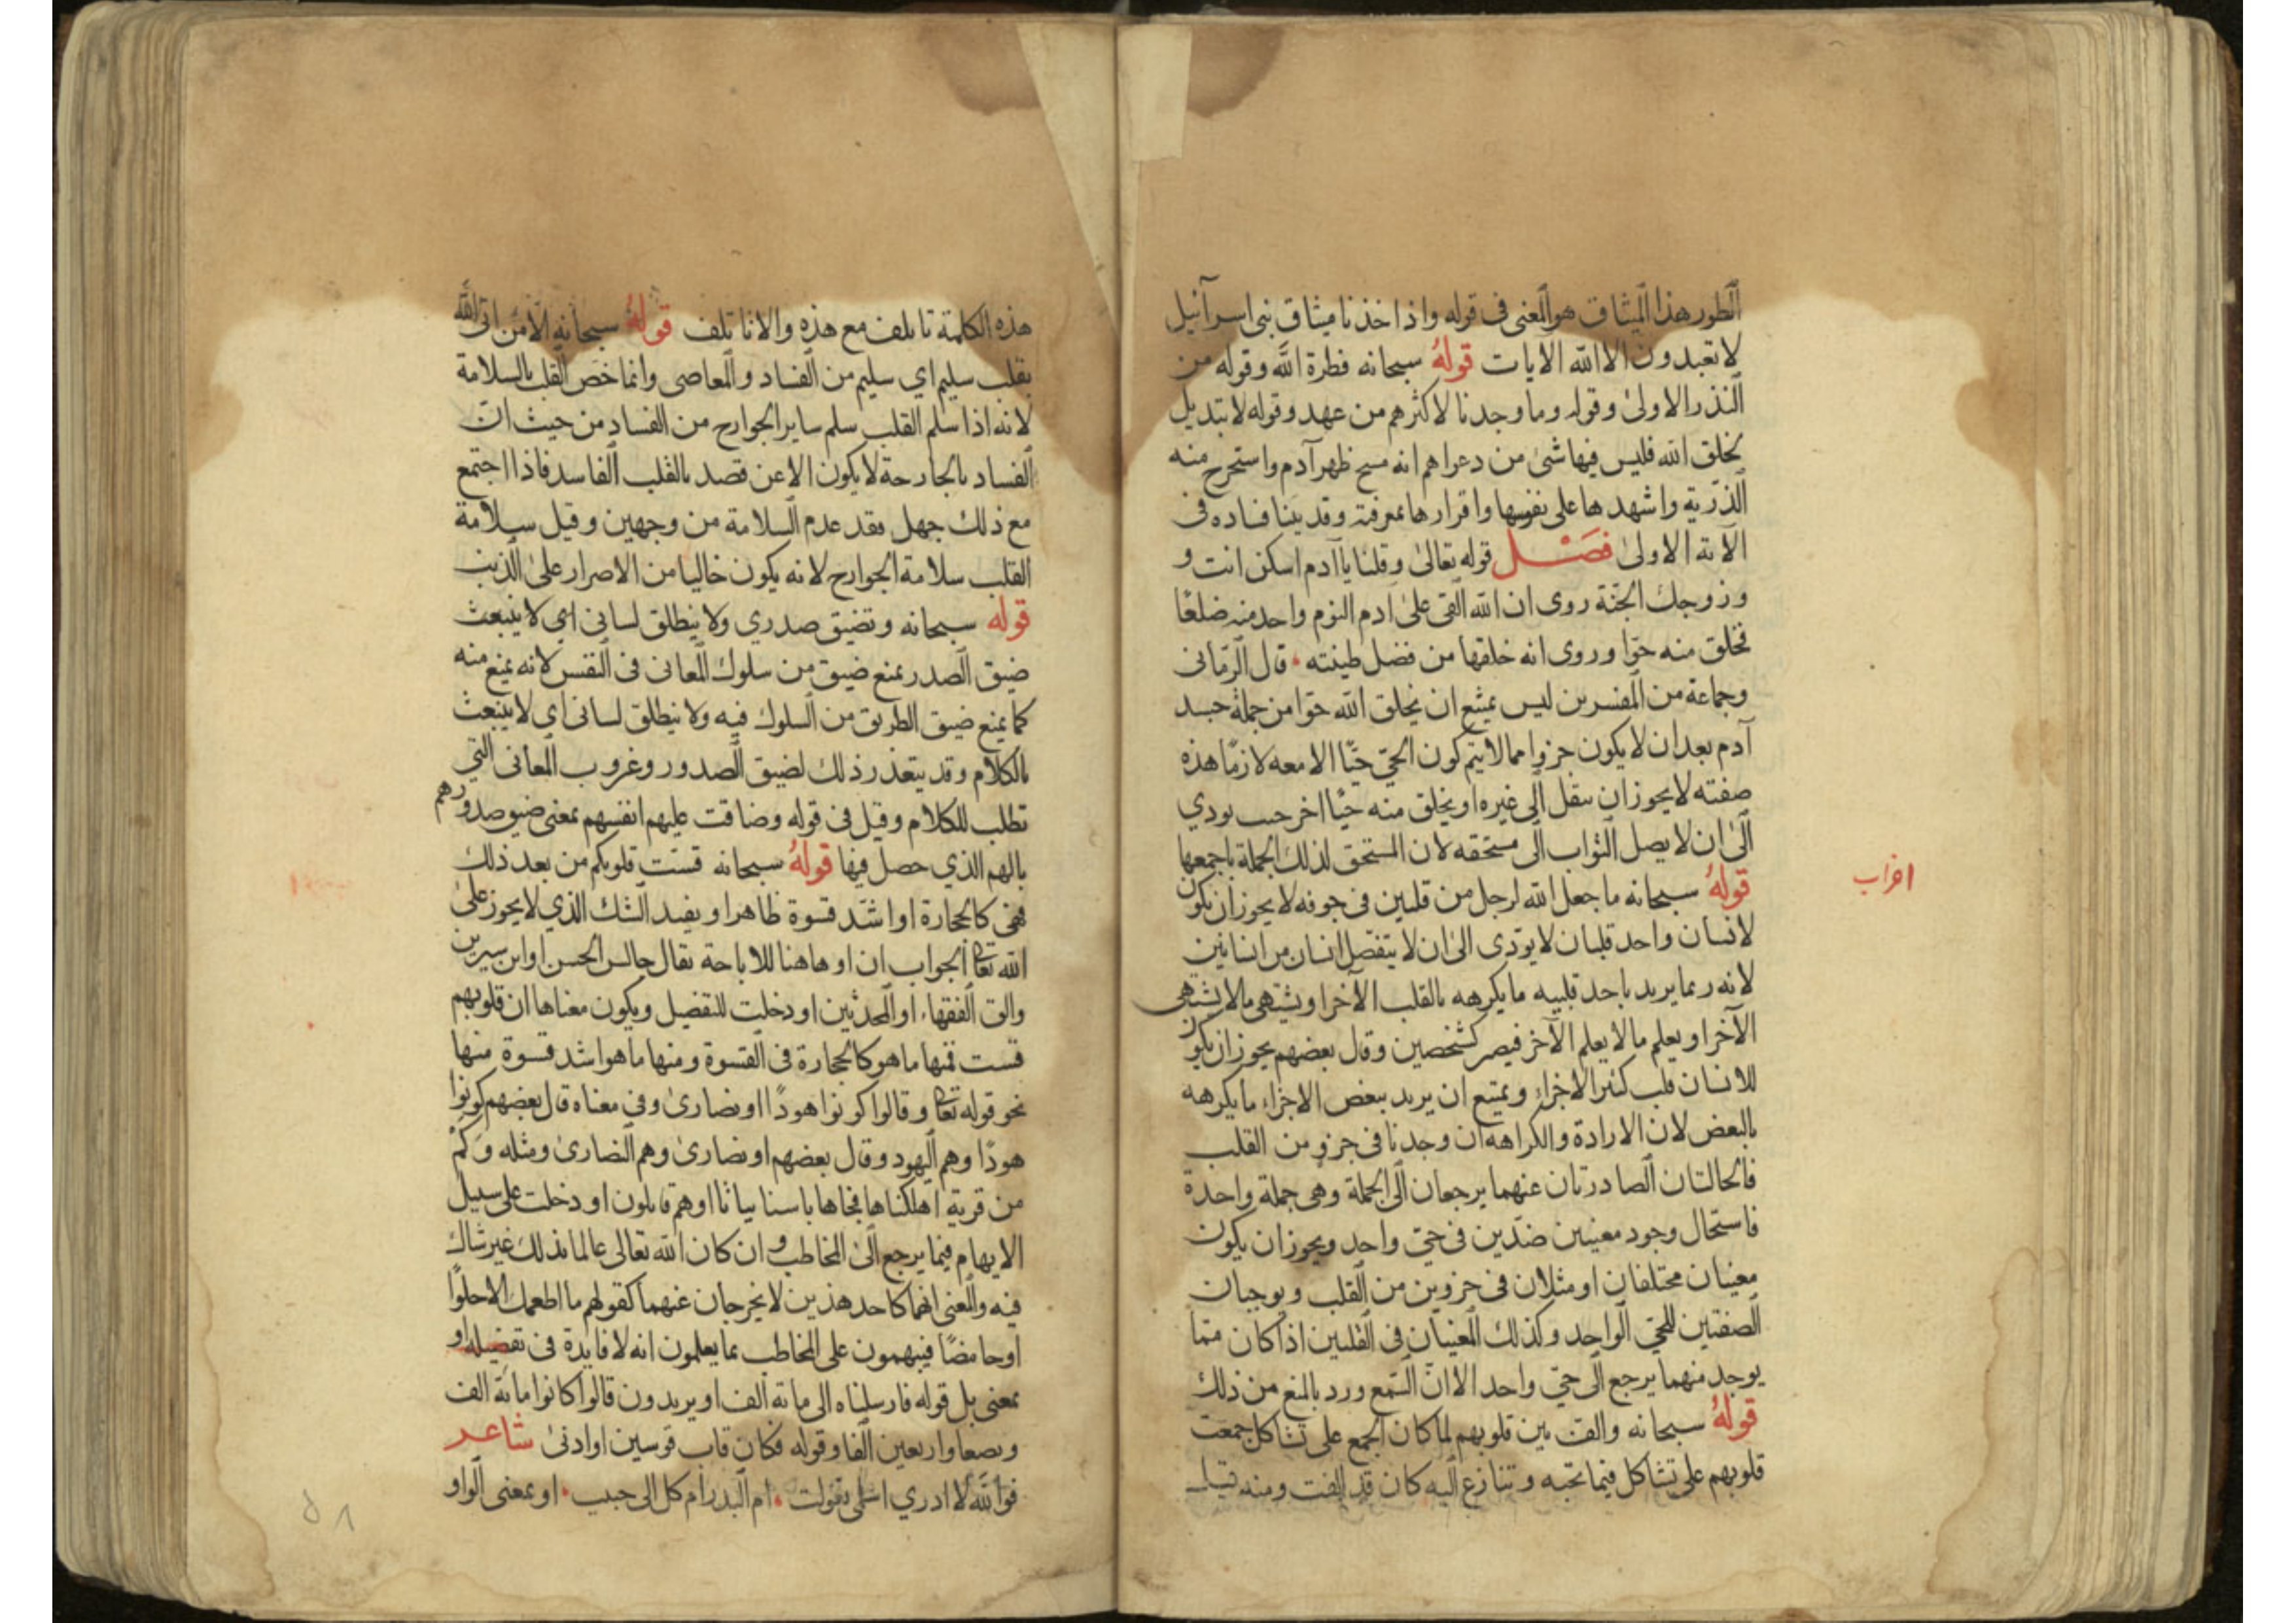 الطور هذا الميثاق هو المعنى فى قوله واذ اخذنا ميثاق بنى اسرآئيل
لا تعبدون الا الله الايات قوله سبحانه فطرة الله وقوله من
النذر الاولى وقوله وما وجدنا لاكثرهم من عهد وقوله لا تبديل
لخلق الله فليس فيها شئ من دعواهم انه مسح ظهر آدم واستخرج منه
الذرية واشهدها على نفوسها واقرارها بمعرفته وقد بينا فساده فى
الآية الاولى فصل قوله تعالى وقلنا يا آدم اسكن انت و
وزوجك الجنة روى ان الله القى على ادم النوم واخذ منه ضلعا
فخلق منه حوا وروى انه خلقها من فضل طينته قال الرمانى
وجماعة من المفسرين ليس يمتنع ان يخلق الله حوا من جملة جسد
آدم بعد ان لا يكون جزوا مما لا يتم كون الحي حيا الا معه لان ما هذه
صفته لا يجوز ان ينقل الى غيره او يخلق منه حيا اخر حيث يودي
الى ان لا يصل الثواب الى مستحقه لان المستحق لذلك الجملة باجمعها
قوله سبحانه ما جعل الله لرجل من قلبين فى جوفه لا يجوز ان يكون
لانسان واحد قلبان لا يودى الى ان لا ينفصل انسان من انسانين
لانه ربما يريد باحد قلبيه ما يكرهه بالقلب الآخر او يشتهى ما لا يشتهى
الآخر او يعلم ما لا يعلم الآخر فيصير كشخصين وقال بعضهم يجوز ان يكون
للانسان قلب كثير الاجزاء ويمتنع ان يريد ببعض الاجزاء ما يكرهه
بالبعض لان الارادة والكراهه ان وجدنا فى جزو من القلب
فالحالتان الصادرتان عنهما يرجعان الى الجملة وهى جملة واحدة
فاستحال وجود معنيين ضدين فى حي واحد ويجوز ان يكون
معنيان مختلفان او مثلان فى جزوين من القلب ويوجبان
الصفتين للحي الواحد وكذلك المعنيان فى القلبين اذا كان مما
يوجد منهما يرجع الى حي واحد الا ان السمع ورد بالمنع من ذلك
قوله سبحانه والف بين قلوبهم لما كان الجمع على تشاكل جمعت
قلوبهم على تشاكل فيما تحبه وتنازع اليه كان قد الفت ومنه قيل
اغراب
هذه الكلمة تاتلف مع هذه والا ناتلف قوله سبحانه الا من اتى الله
بقلب سليم اي سليم من الفساد والمعاصى وانما خص القلب بالسلامة
لانه اذا سلم القلب سلم ساير الجوارح من الفساد من حيث ان
الفساد بالجارحة لا يكون الا عن قصد بالقلب الفاسد فاذا اجتمع
مع ذلك جهل فقد عدم السلامة من وجهين وقيل سلامة
القلب سلامة الجوارح لانه يكون خاليا من الاصرار على الذنب
قوله سبحانه وتضيق صدري ولا ينطلق لسانى اي لا ينبعث
ضيق الصدر يمنع ضيق من سلوك المعانى فى النفس لانه يمنع منه
كما يمنع ضيق الطريق من السلوك فيه ولا ينطلق لسانى اي لا ينبعث
بالكلام وقد يتعذر ذلك لضيق الصدور وغروب المعانى التي
تطلب للكلام وقيل فى قوله وضاقت عليهم انفسهم بمعنى ضيق صدورهم
بالهم الذي حصل فيها قوله سبحانه قست قلوبكم من بعد ذلك
فهى كالحجارة او اشد قسوة ظاهر او يفيد الشك الذي لا يجوز على
الله تعا الجواب ان او هاهنا للاباحة يقال جالس الحسن او ابن سيرين
والق الفقهاء او المحدثين او دخلت للتفضيل ويكون معناها ان قلوبهم
قست فمنها ما هو كالحجارة فى القسوة ومنها ما هو اشد قسوة منها
نحو قوله تعا وقالوا كونوا هودا او نصارى وفى معناه قال بعضهم كونوا
هودا وهم اليهود وقال بعضهم او نصارى وهم النصارى ومثله وكم
من قرية اهلكناها فجاها باسنا بياتا او هم قايلون او دخلت على سبيل
الايهام فيما يرجع الى المخاطب وان كان الله تعالى عالما بذلك غير شاك
فيه والمعنى انهما كاحد هذين لا يخرجان عنهما كقولهم ما اطعمك الا حلوا
او حامضا فيبهمون على المخاطب بما يعلمون انه لا فايدة فى تفضيله او
بمعنى بل قوله فارسلناه الى مائة الف او يريدون قالوا كانوا مائة الف
وبضعا واربعين الفا وقوله فكان قاب قوسين او ادنى شاعر
فوالله لا ادري اسلمى تقولت ام البدر ام كل الى حبيب او بمعنى الواو